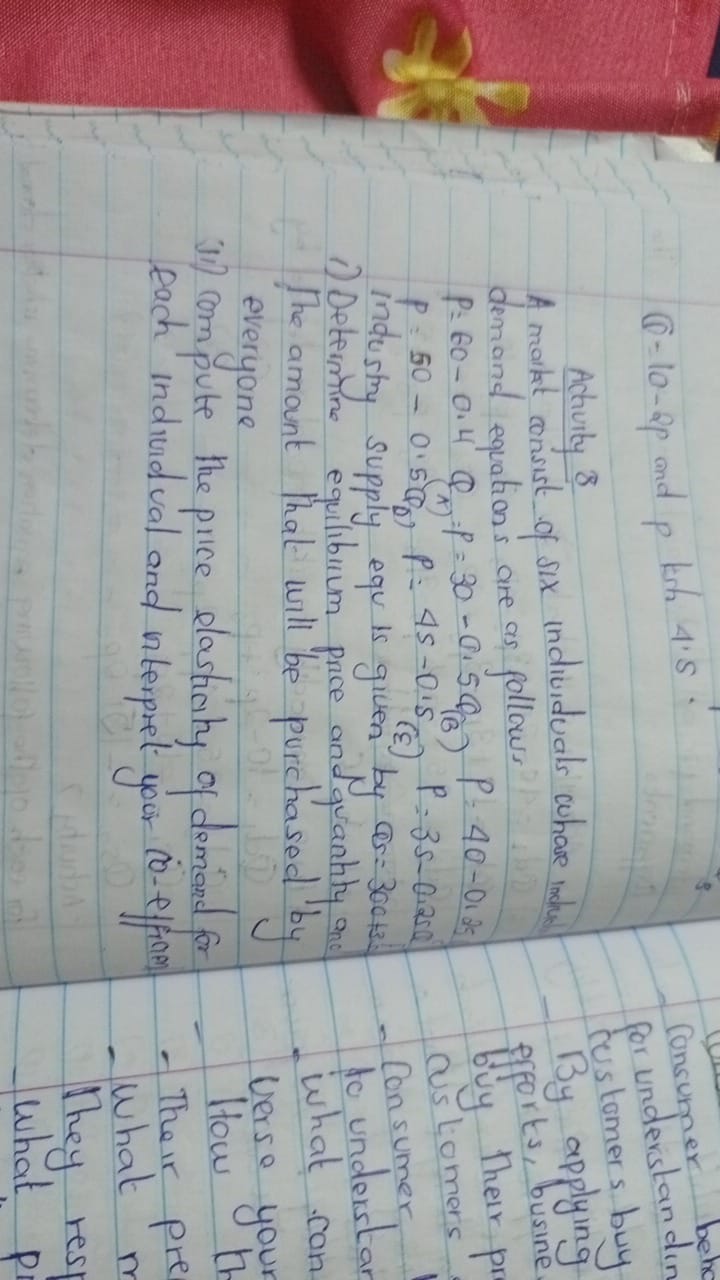 Q = 10 - 2p and p besh 4.5.
Activity 8
A market consist of six individuals whose individual
demand equations are as follows
P = 60 - 0.4 Q (A) = P = 30 - 0.5Q (B) P = 40 - 0.25
P = 50 - 0.5Q (D) P = 45 - 0.5 (E) P = 35 - 0.25Q
industry supply equ is given by Qs = 300+
i) Determine equilibrium price and quantity and
The amount that will be purchased by
everyone
ii) compute the price elasticity of demand for
each individual and interpret your
Consumer
for understandin
customers buy
- By applying
efforts, busine
buy their pr
customers
- Consumer
to understan
- What can
verse your
- How th
- Their pre
- What m
They resp
- What pr